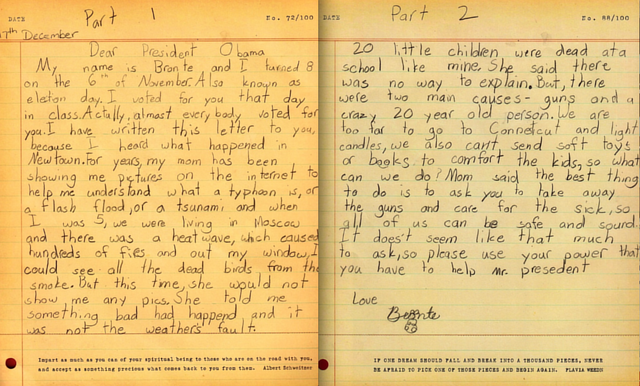 DATE
Part 1
No. 72/100
17th December
Dear President Obama
My name is Bronte and I turned 8
on the 6th of November. Also known as
eleton day. I voted for you that day
in class. Actally, almost every body voted for
you. I have written this letter to you,
because I heard what happened in
Newtown. For years, my mom has been
showing me pictures on the internet to
help me understand what a typhoon is, or
a flash flood, or a tsunami and when
I was 5, we were living in Moscow
and there was a heatwave, which caused
hundreds of fires and out my window, I
could see all the dead birds from the
smoke. But this time, she would not
show me any pics. She told me
something bad had happend and it
was not the weathers fault.
Impart as much as you can of your spiritual being to those who are on the road with you,
and accept as something precious what comes back to you from them. Albert Schweitzer
DATE
Part 2
No. 68/100
20 little children were dead at a
school like mine. She said there
was no way to explain. But, there
were two main causes- guns and a
crazy 20 year old person. We are
too far to go to Connetcut and light
candles, we also can't send soft toys
or books to comfort the kids, so what
can we do? Mom said the best thing
to do is to ask you to take away
the guns and care for the sick, so
all of us can be safe and sound.
It does't seem like that much
to ask, so please use your power that
you have to help Mr. presedent
Love
Bronte
IF ONE DREAM SHOULD FALL AND BREAK INTO A THOUSAND PIECES, NEVER
BE AFRAID TO PICK ONE OF THOSE PIECES AND BEGIN AGAIN. FLAVIA WEEDN